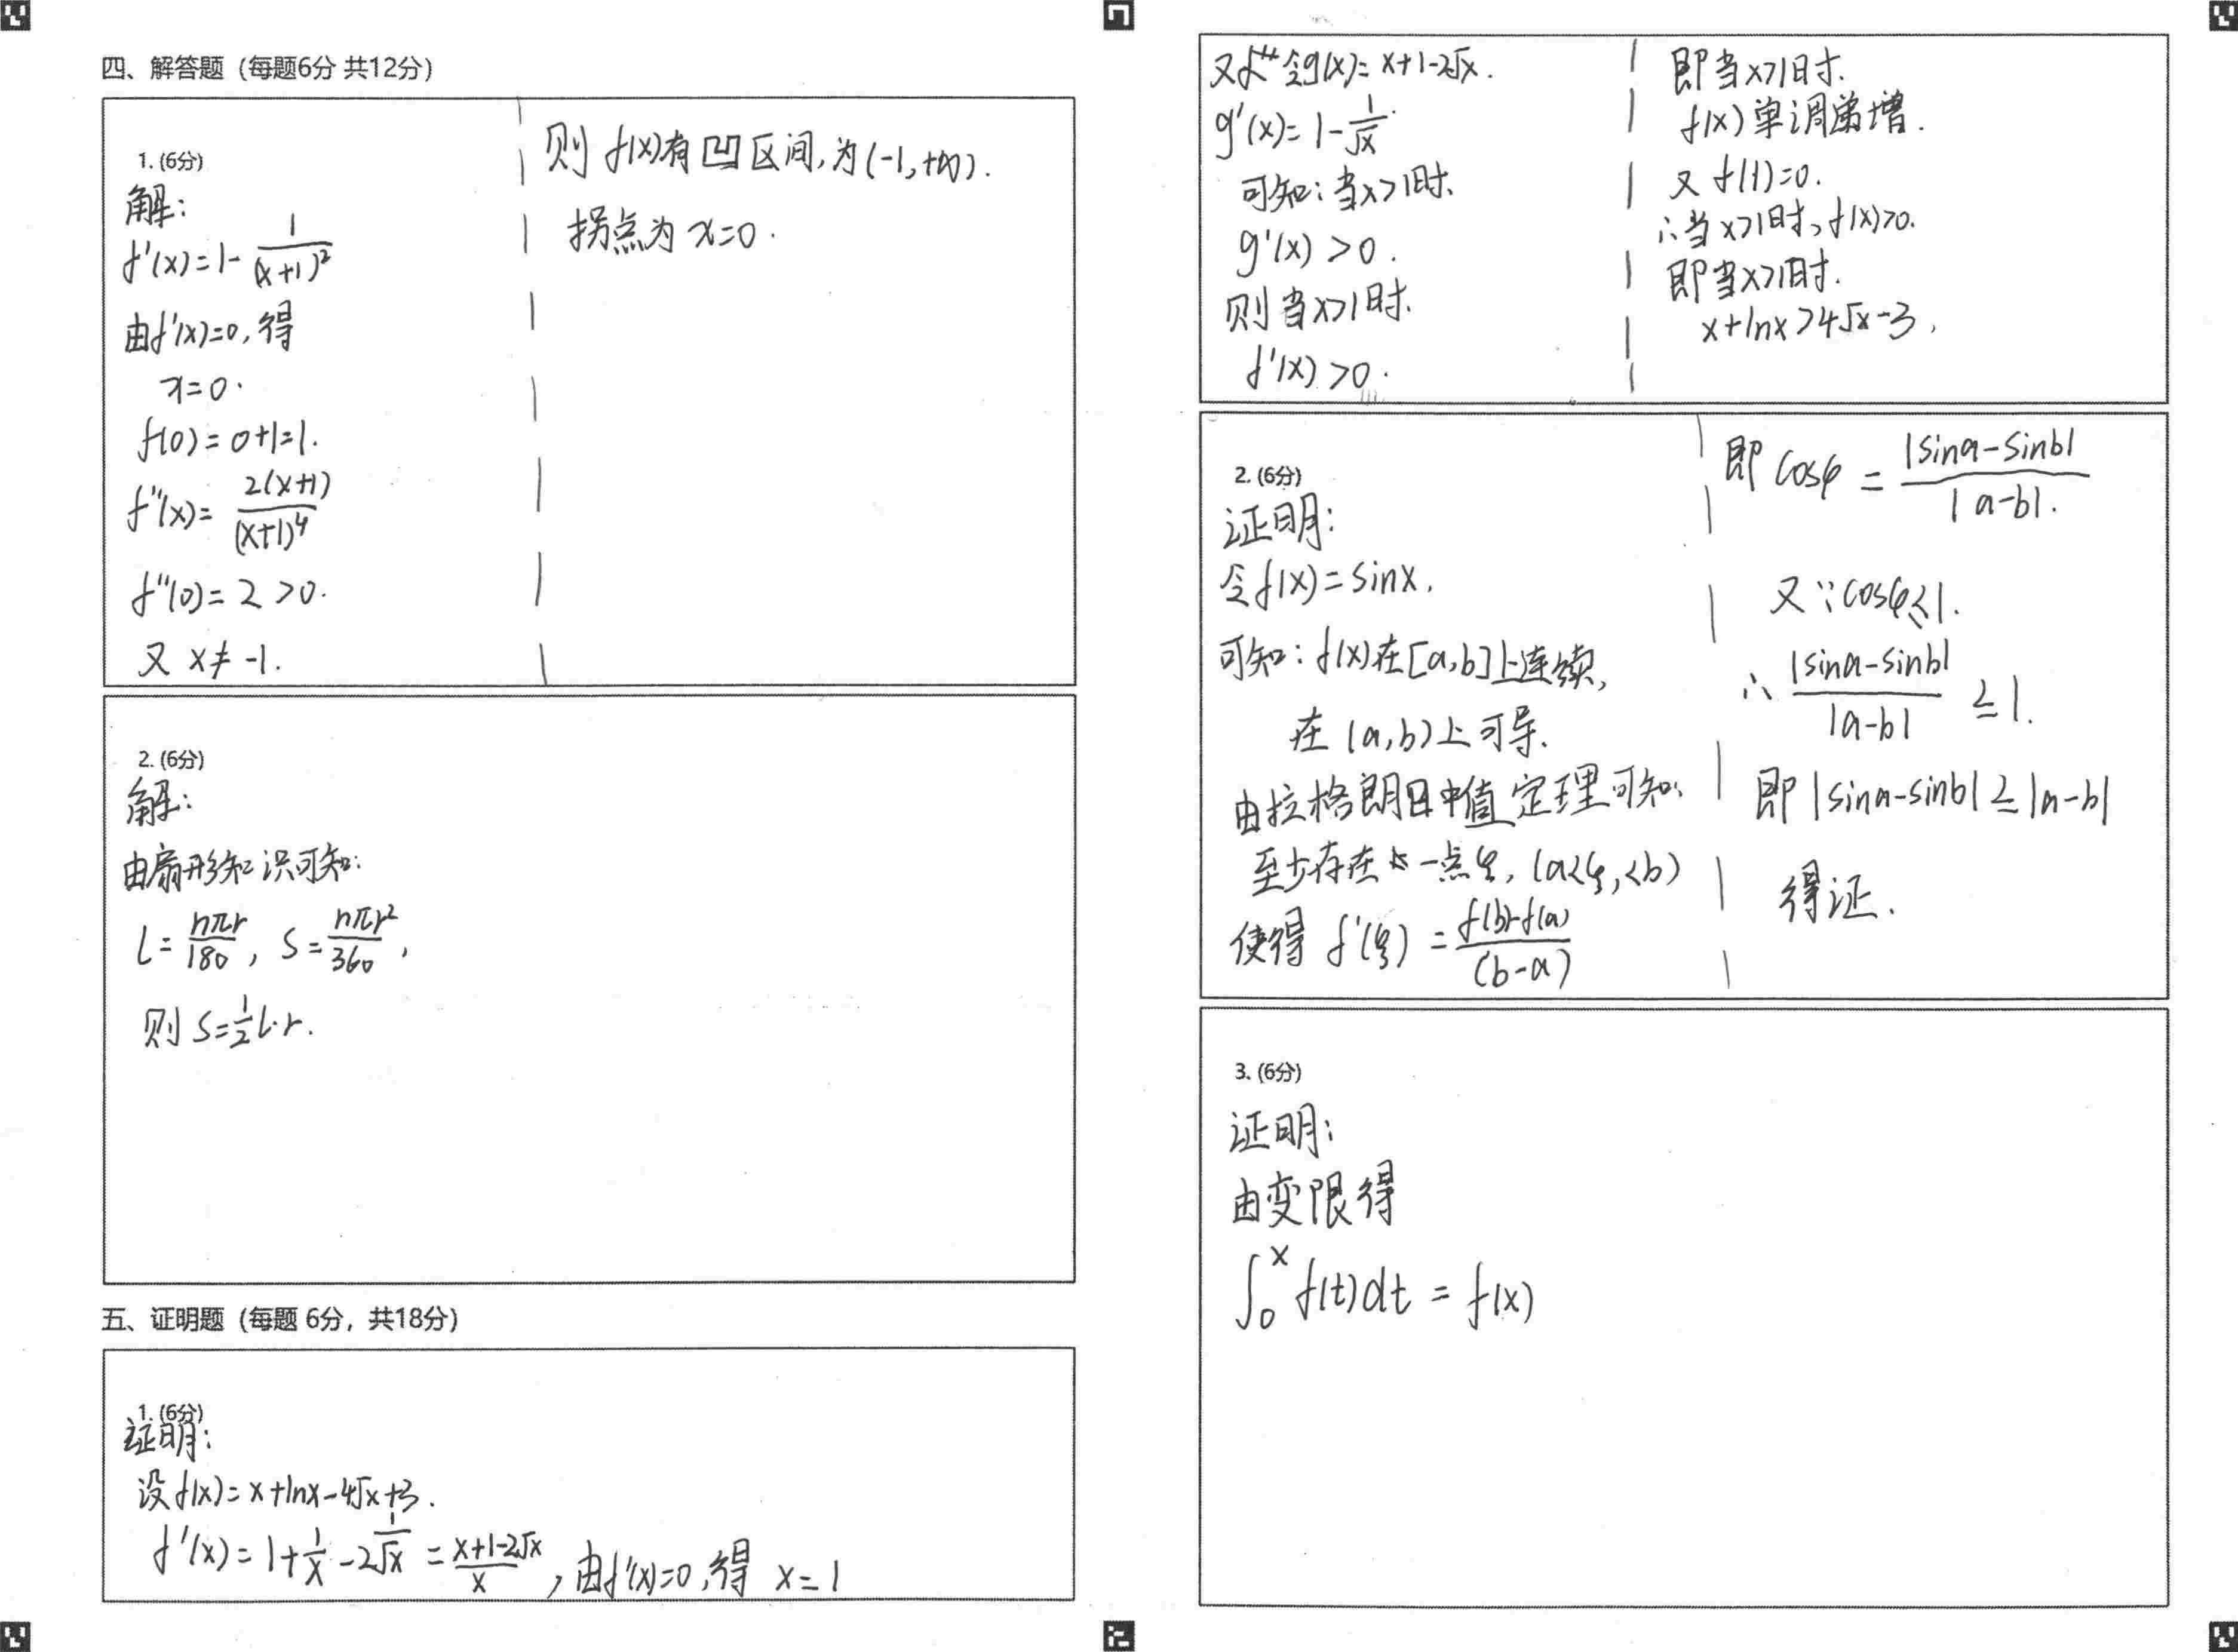 四、解答题（每题6分 共12分）
1. (6分)
解：
f'(x)=1-\frac{1}{(x+1)^2}
由f'(x)=0,得
x=0.
f(0)=0+1=1.
f''(x)=\frac{2(x+1)}{(x+1)^4}
f''(0)=2>0.
又 x≠-1.
则 f(x)有凹区间,为(-1,+∞).
拐点为 x=0.
2. (6分)
解：
由扇形知识可知:
l=\frac{nπr}{180}, S=\frac{nπr^2}{360},
则 S=\frac{1}{2}l·r.
五、证明题（每题 6分，共18分）
1. (6分)
证明：
设f(x)=x+lnx-4√x+3.
f'(x)=1+\frac{1}{x}-2\frac{1}{√x}=\frac{x+1-2√x}{x},由f'(x)=0,得 x=1
令g(x)=x+1-2√x.
g'(x)=1-\frac{1}{√x}.
可知:当x>1时.
g'(x)>0.
则当x>1时.
f'(x)>0.
即当x>1时.
f(x)单调递增.
又 f(1)=0.
∴当x>1时,f(x)>0.
即当x>1时.
x+lnx>4√x-3,
2. (6分)
证明:
令f(x)=sinx.
可知:f(x)在[a,b]上连续,
在(a,b)上可导.
由拉格朗日中值定理可知:
至少存在一点ξ,(a<ξ,<b)
使得 f'(ξ)=\frac{f(b)-f(a)}{(b-a)}
即 cosξ=\frac{|sina-sinb|}{|a-b|}.
又∵cosξ≤1.
∴\frac{|sina-sinb|}{|a-b|}≤1.
即|sina-sinb|≤|a-b|
得证.
3. (6分)
证明:
由变限得
∫_0^x f(t)dt=f(x)